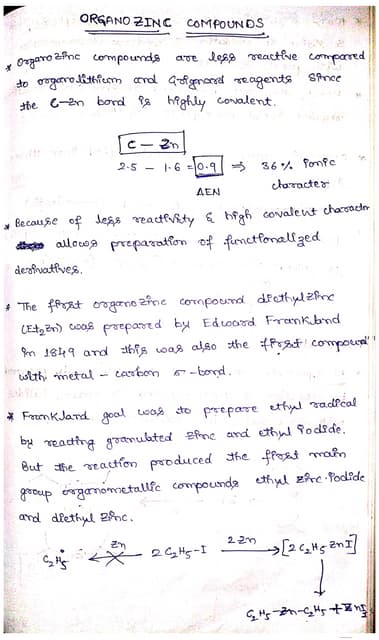 ORGANO ZINC COMPOUNDS
* Organo Zinc compounds are less reactive compared
to organolithium and Grignard reagents since
the C-Zn bond is highly covalent.
C - Zn
2.5 - 1.6 = 0.9 ⇒ 36% ionic
ΔEN character
* Because of less reactivity & high covalent character
allows preparation of functionalized
derivatives.
* The first organozinc compound diethylzinc
(Et₂Zn) was prepared by Edward Frankland
in 1849 and this was also the first compound
with metal - carbon σ-bond.
* Frankland goal was to prepare ethyl radical
by reacting granulated zinc and ethyl iodide.
But the reaction produced the first main
group organometallic compounds ethyl zinc iodide
and diethyl zinc.
Zn 2 Zn
C₂H₅• 2 C₂H₅-I → [2 C₂H₅ ZnI]
↓
C₂H₅-Zn-C₂H₅ + ZnI